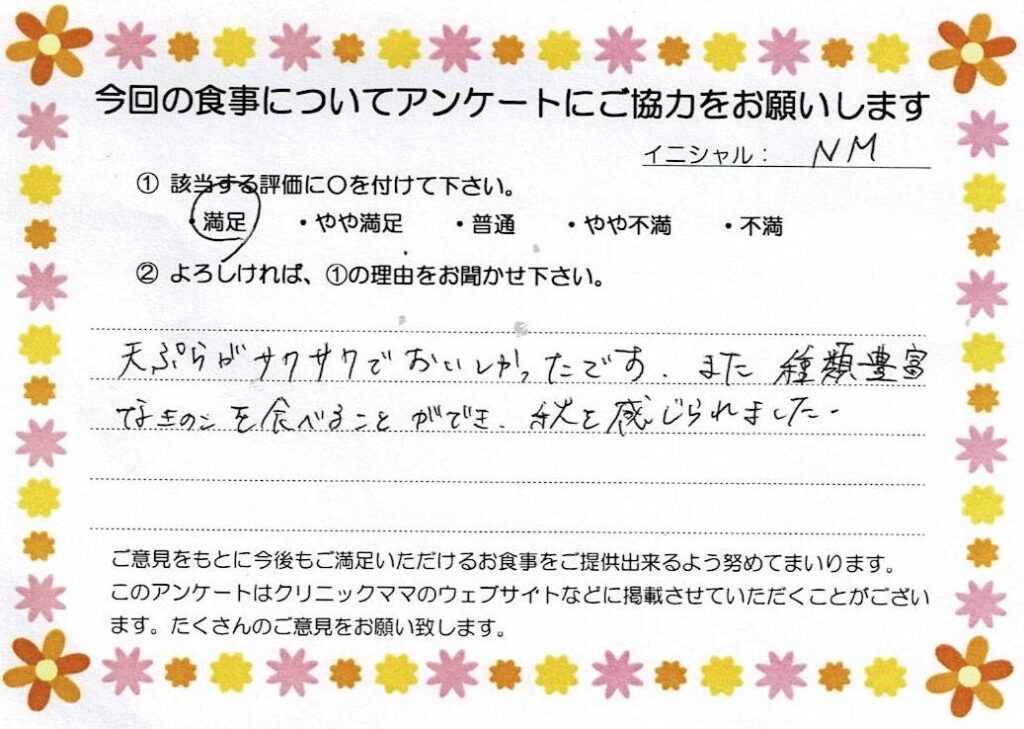 今回の食事についてアンケートにご協力をお願いします
イニシャル： NM
① 該当する評価に〇を付けて下さい。
・満足 ・やや満足 ・普通 ・やや不満 ・不満
② よろしければ、①の理由をお聞かせ下さい。
天ぷらがサクサクでおいしかったです。また種類豊富
なきのこを食べることができ、秋を感じられました。
ご意見をもとに今後もご満足いただけるお食事をご提供出来るよう努めてまいります。
このアンケートはクリニックママのウェブサイトなどに掲載させていただくことがござい
ます。たくさんのご意見をお願い致します。